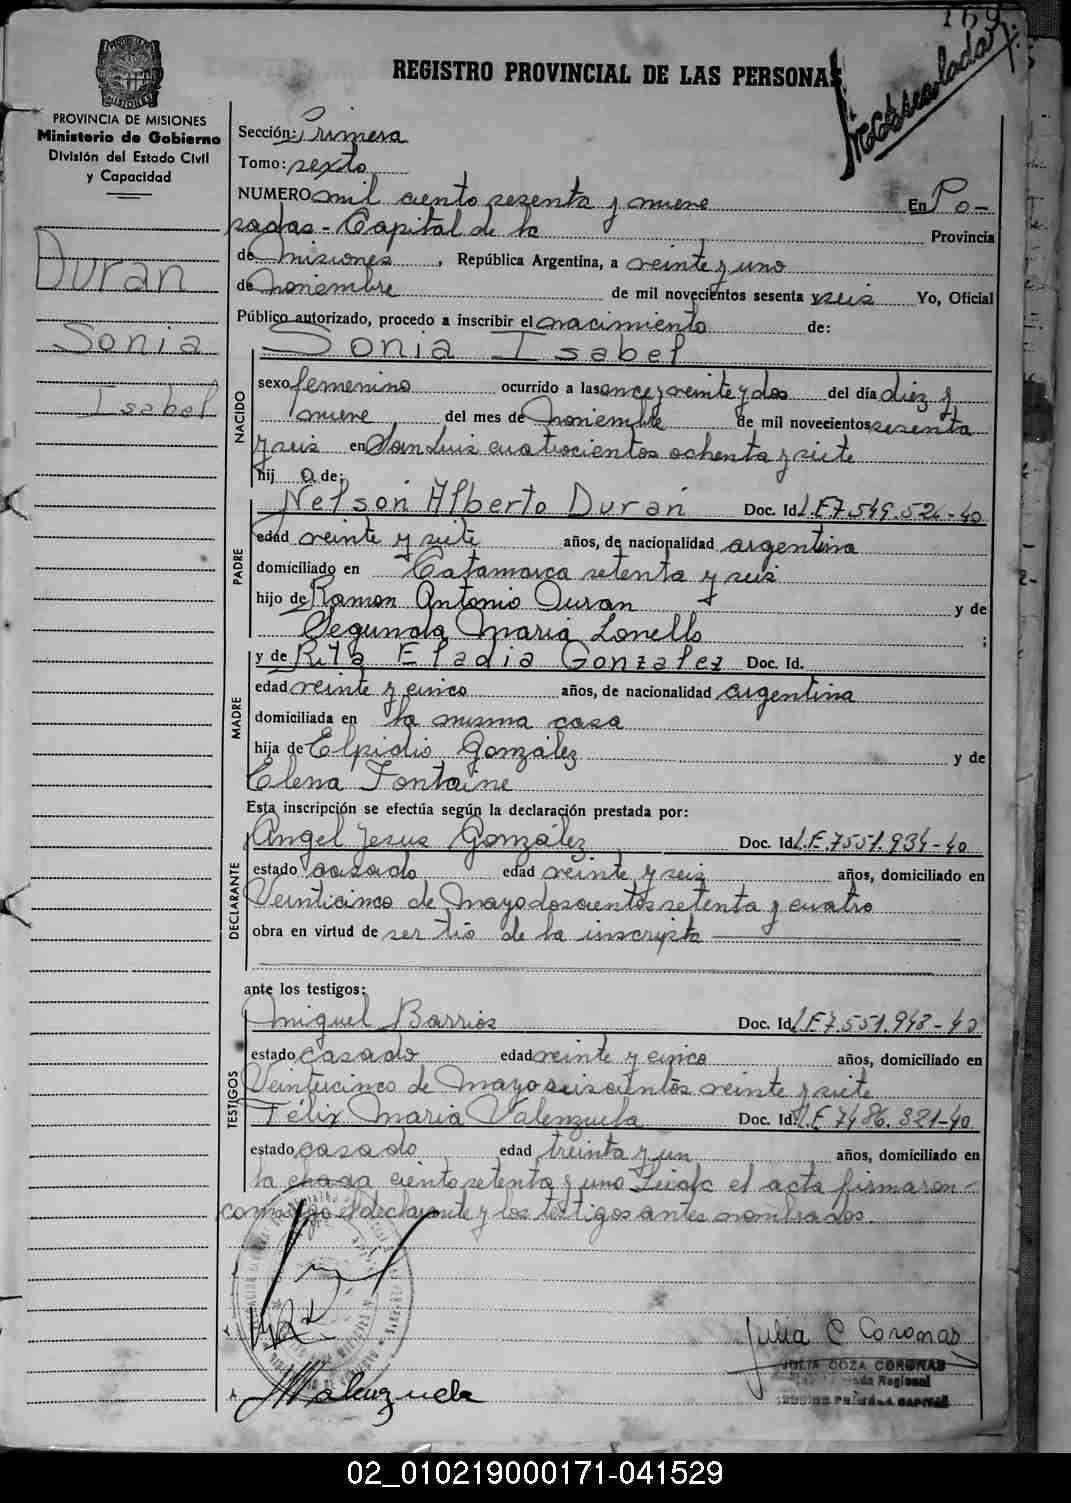 169
REGISTRO PROVINCIAL DE LAS PERSONAS
PROVINCIA DE MISIONES
Ministerio de Gobierno
División del Estado Civil
y Capacidad
Duran
Sonia
Isabel
Sección: Primera
Tomo: sexto
NUMERO mil ciento sesenta y nueve En Po-
sadas - Capital de la Provincia
de Misiones, República Argentina, a veinte y uno
de noviembre de mil novecientos sesenta y seis Yo, Oficial
Público autorizado, procedo a inscribir el nacimiento de:
Sonia Isabel
NACIDO
sexo femenino ocurrido a las once y veinte y dos del día diez y
nueve del mes de Noviembre de mil novecientos sesenta
y seis en San Luis cuatrocientos ochenta y siete
hij a de:
PADRE
Nelson Alberto Duran Doc. Id. L.E 7.549.526-40
edad veinte y siete años, de nacionalidad argentina
domiciliado en Catamarca setenta y seis
hijo de Ramon Antonio Duran y de
Segunda Maria Lonello ;
MADRE
y de Rita Eladia Gonzalez Doc. Id.
edad veinte y cinco años, de nacionalidad argentina
domiciliada en la misma casa
hija de Elpidio González y de
Elena Fontaine
Esta inscripción se efectúa según la declaración prestada por:
DECLARANTE
Angel Jesus González Doc. Id. L.E. 7551.934-40
estado casado edad veinte y seis años, domiciliado en
Veinticinco de Mayo doscientos setenta y cuatro
obra en virtud de ser tio de la inscripta
ante los testigos:
TESTIGOS
Miguel Barrios Doc. Id. L.E 7.551.943-40
estado casado edad veinte y cinco años, domiciliado en
Veinticinco de Mayo seiscientos veinte y siete
Félix Maria Valenzuela Doc. Id. L.E 7486.321-40
estado casado edad treinta y un años, domiciliado en
la chaca ciento setenta y uno Leida el acta firmaron
conmigo el declarante y los testigos antes nombrados.
Julia C Coronas
JULIA COZA CORONAS
Regional
SECCION PRIMERA CAPITAL
Valenzuela
02_010219000171-041529